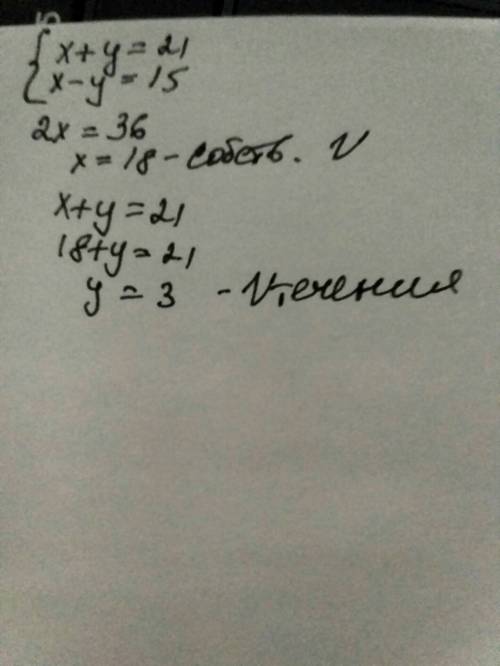 { x+y = 21
x-y = 15
2x = 36
x = 18 - собств. V
x+y = 21
18+y = 21
y = 3 - V течения